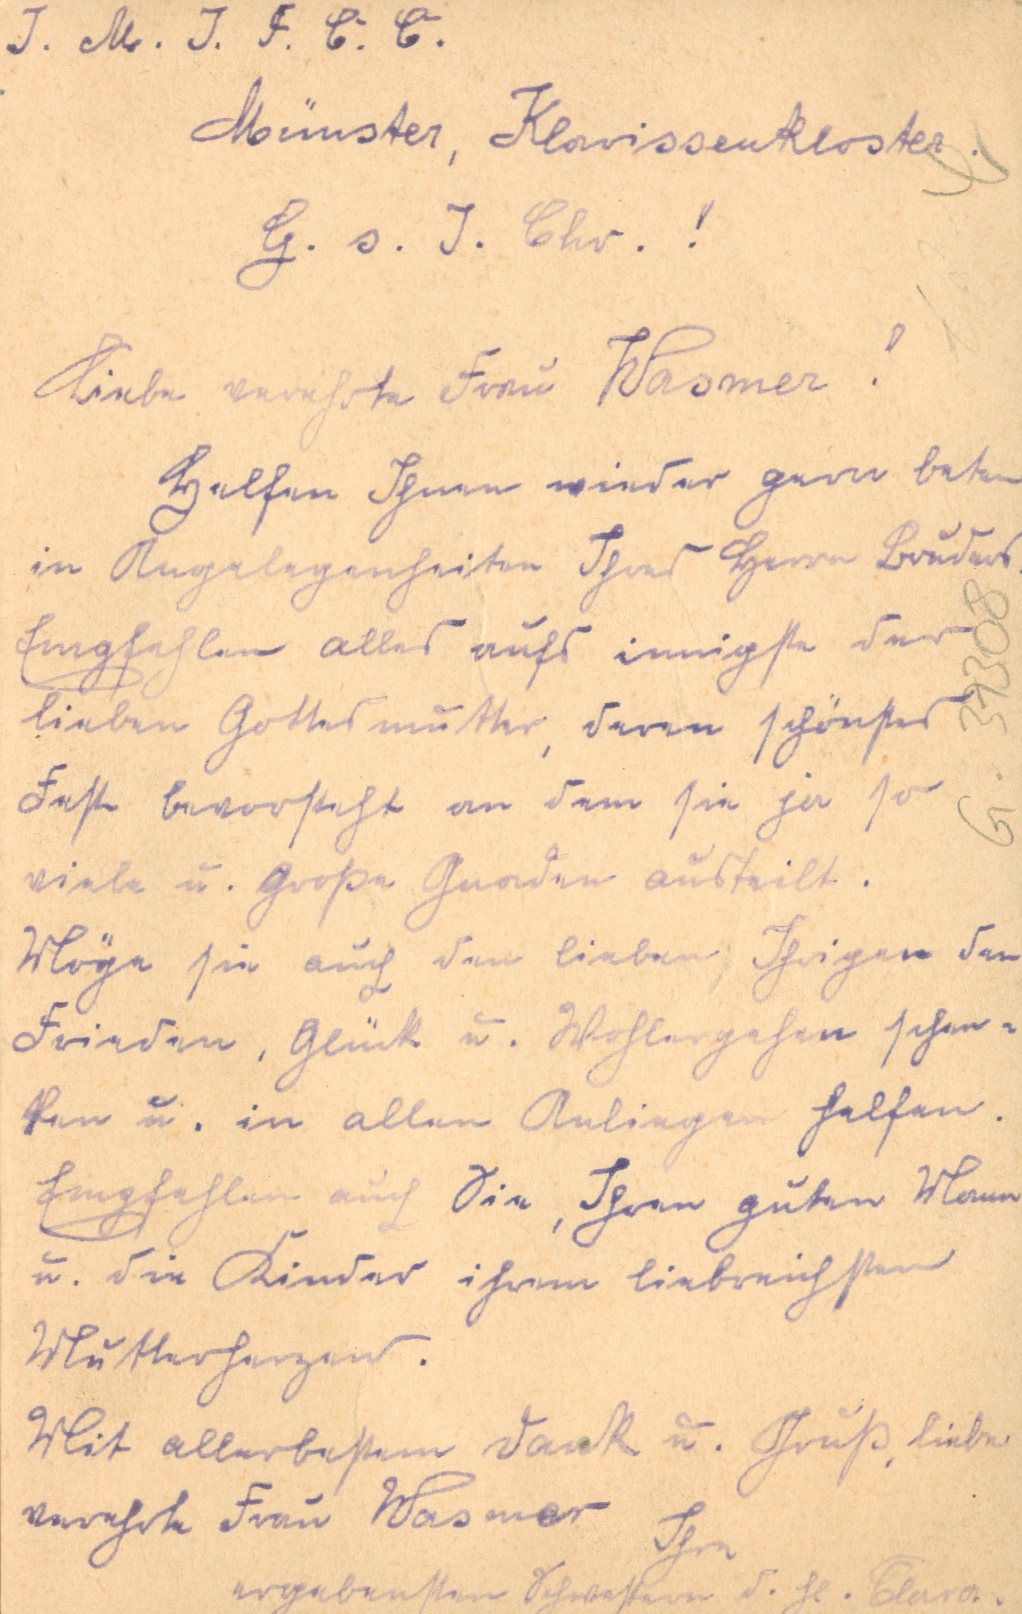 J. M. J. F. C. C.
Münster, Klarissenkloster.
G. s. J. Chr. !
Liebe verehrte Frau Wasmer !
Helfen Ihnen wieder gern beten
in Angelegenheiten Ihres Herrn Bruders.
Empfehlen alles aufs innigste der
lieben Gottesmutter, deren schönstes
Fest bevorsteht an dem sie ja so
viele u. große Gnaden austeilt.
Möge sie auch den lieben Ihrigen den
Frieden, Glück u. Wohlergehen schen=
ken u. in allen Anliegen helfen.
Empfehlen auch Sie, Ihren guten Mann
u. die Kinder ihrem liebreichsten
Mutterherzen.
Mit allerbestem Dank u. Gruß, liebe
verehrte Frau Wasmer
Ihre
ergebensten Schwestern d. hl. Clara.
G. 3908